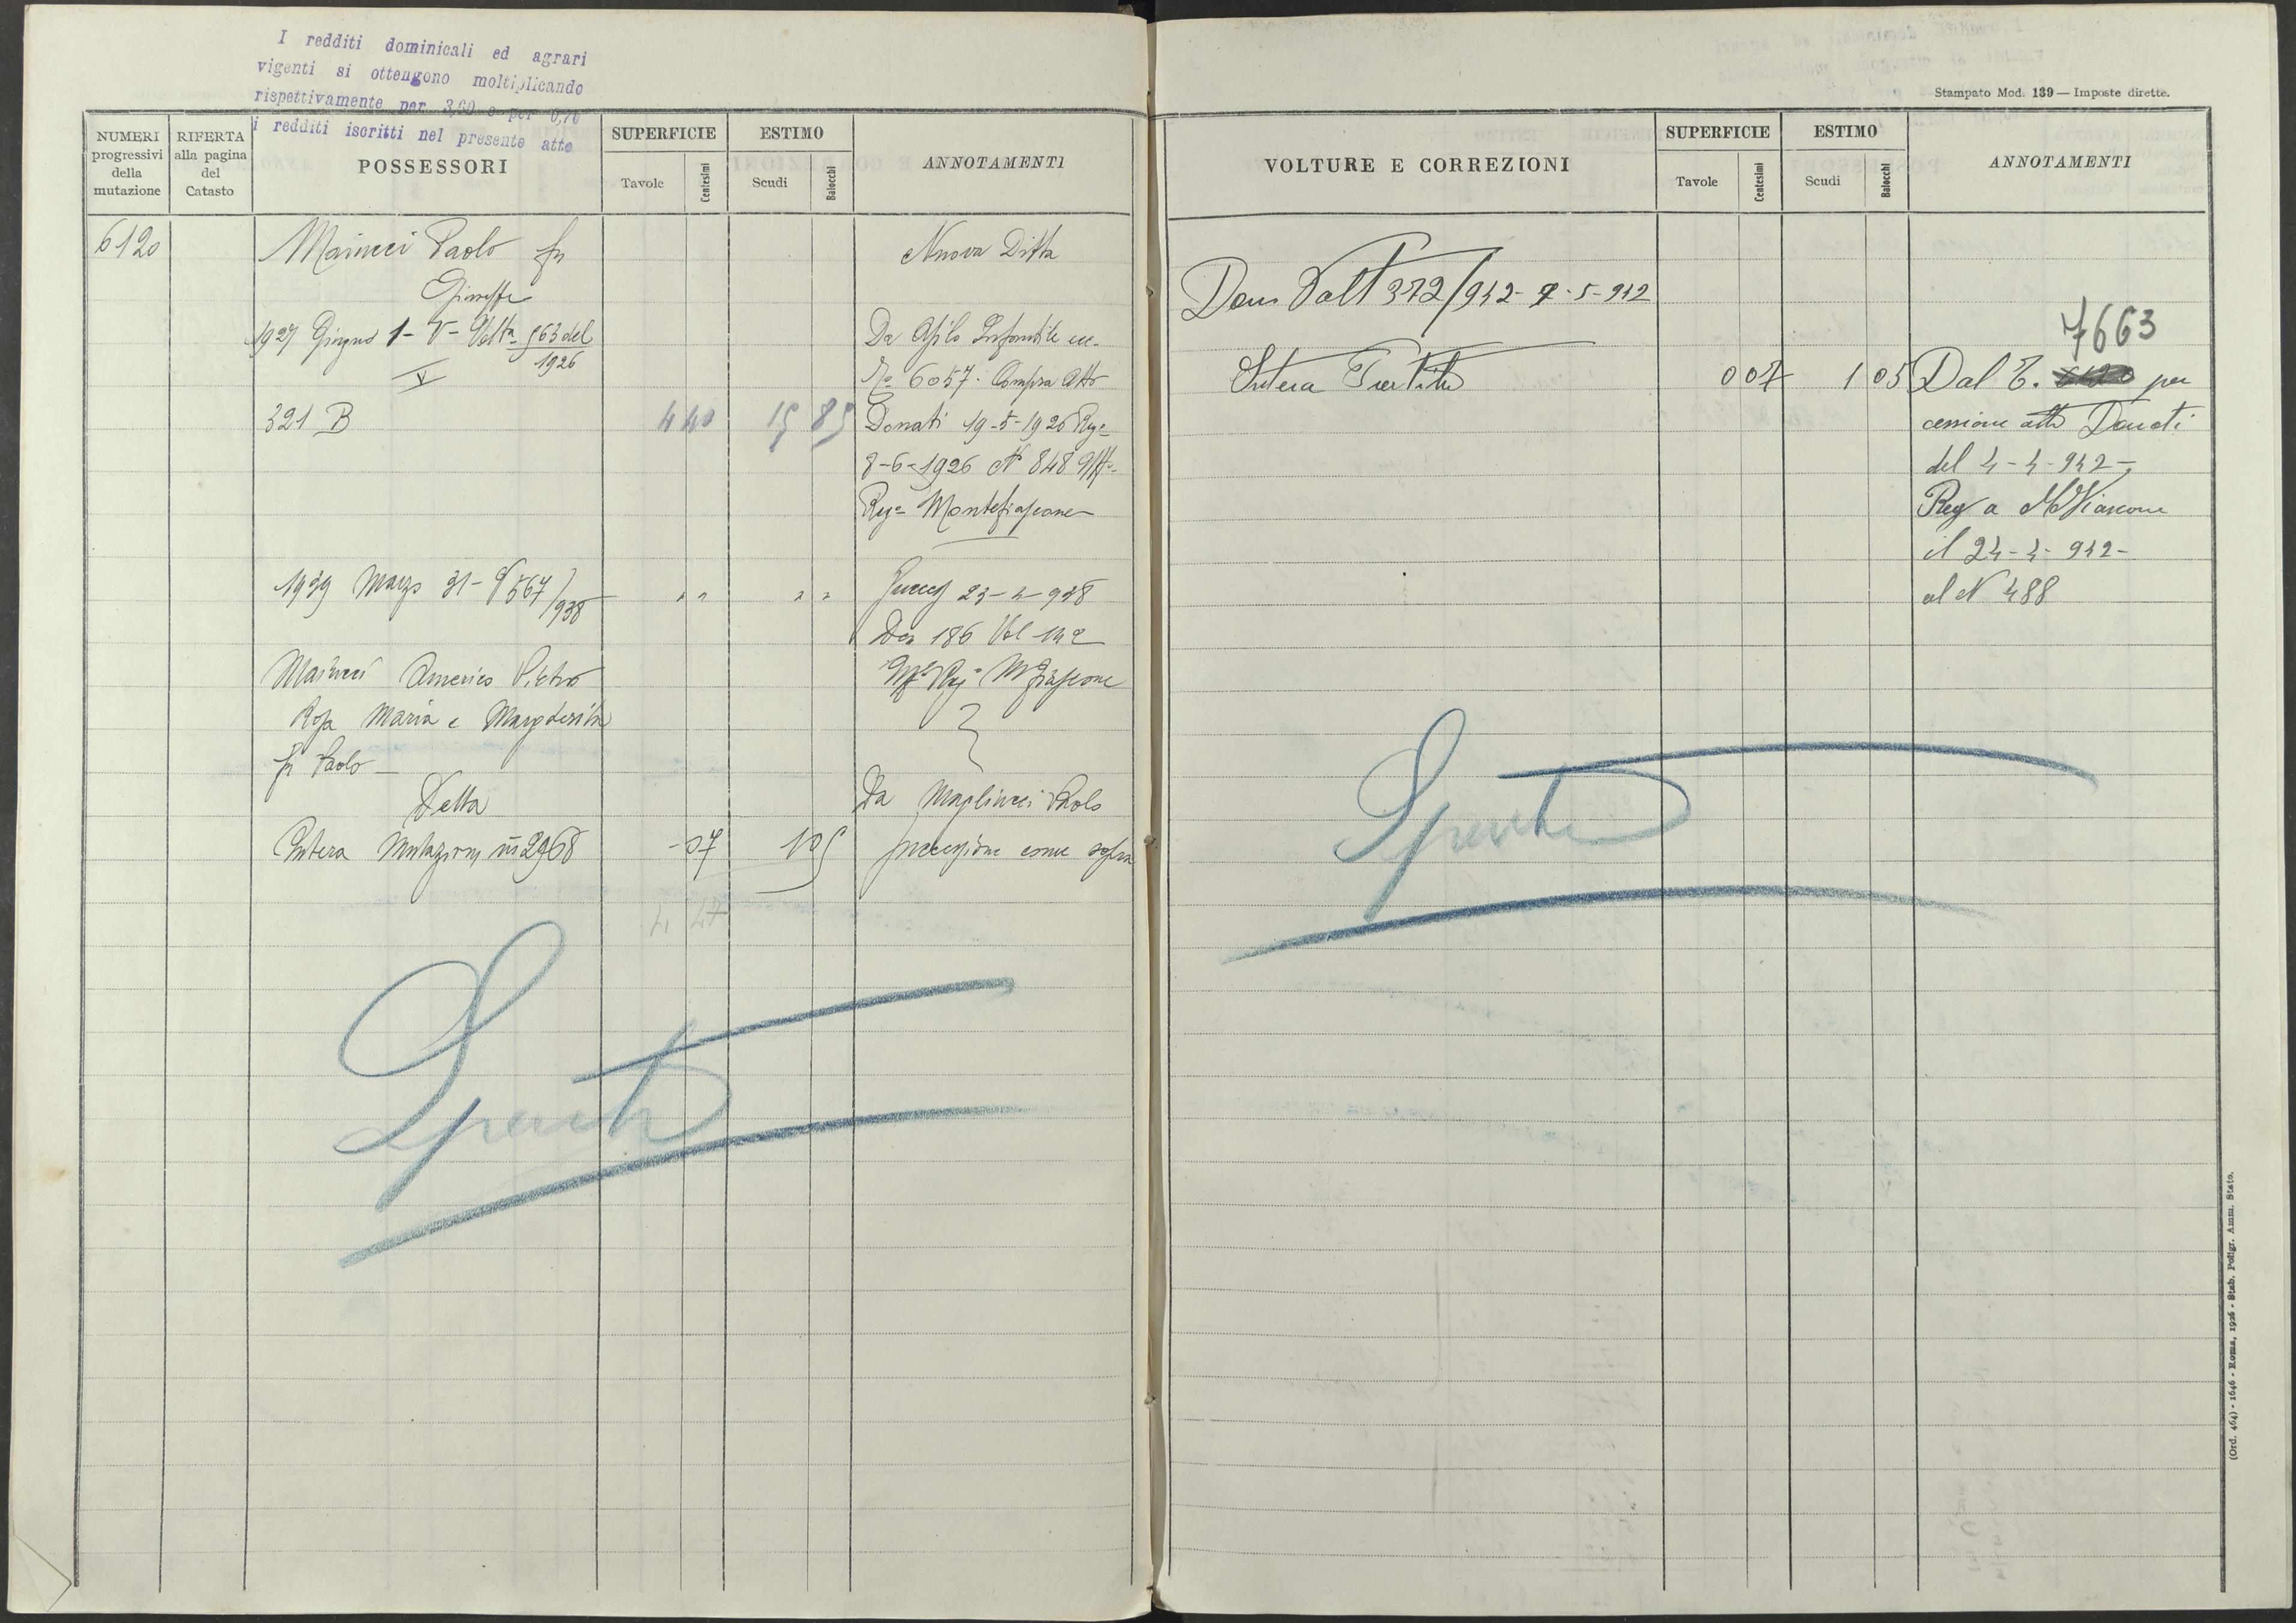 I redditi dominicali ed agrari
vigenti si ottengono moltiplicando
rispettivamente per 3,60 e per 0,70
i redditi iscritti nel presente atto
NUMERI
progressivi
della
mutazione
RIFERTA
alla pagina
del
Catasto
POSSESSORI
SUPERFICIE
Tavole
Centesimi
ESTIMO
Scudi
Baiocchi
ANNOTAMENTI
6120
Paolo fu
Nuova Ditta
Giuseppe
1927 Giugno 1 - V - Volta 563 del
1926
Da Asilo Infantile ecc.
6057. Compra Atto
321 B
4 40
15 85
Donati 19-5-1926 Rega
8-6-1926 N° 848
Rega Montefiascone
1939 Marzo 31 - V 567/938
" "
" "
Succes 23-4-938
Den 186 Vol 142
Americo Pietro
Rosa Maria e Margherita
fu Paolo
Uffo Rego M Fiascone
Detta
Da Paolo
Intera Mutazione 2968
- 07
1 05
successione come sopra
4 47
Spenta
Stampato Mod. 139 — Imposte dirette.
VOLTURE E CORREZIONI
SUPERFICIE
Tavole
Centesimi
ESTIMO
Scudi
Baiocchi
ANNOTAMENTI
Volt 372/942 - 7-5-942
7663
Intera Partita
0 07
1 05
Dal T. 6120 per
cessione atto Donati
del 4-4-942
Reg a MFiascone
il 24-4-942-
al N 488
Spenta
(Ord. 464) - 1646 - Roma, 1926 - Stab. Poligr. Amm. Stato.